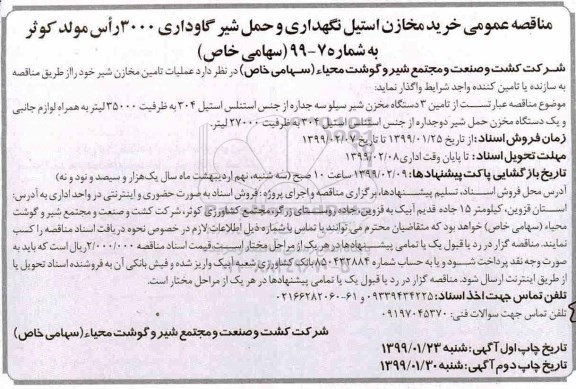 مناقصه عمومی خرید مخازن استیل نگهداری و حمل شیر گاوداری ۳۰۰۰ رأس مولد کوثر
به شماره ۷-۹۹ (سهامی خاص)
شرکت کشت و صنعت و مجتمع شیر و گوشت محیاء (سهامی خاص) در نظر دارد عملیات تامین مخازن شیر خود را از طریق مناقصه
به سازنده یا تامین کننده واجد شرایط واگذار نماید:
موضوع مناقصه عبارتست از تامین ۳ دستگاه مخزن شیر سیلو سه جداره از جنس استنلس استیل ۳۰۴ به ظرفیت ۳۵۰۰۰ لیتر به همراه لوازم جانبی
و یک دستگاه مخزن حمل شیر دوجداره از جنس استنلس استیل ۳۰۴ به ظرفیت ۲۷۰۰۰ لیتر.
زمان فروش اسناد: از تاریخ ۱۳۹۹/۰۱/۲۵ تا تاریخ ۱۳۹۹/۰۲/۰۷
مهلت تحویل اسناد: تا پایان وقت اداری ۱۳۹۹/۰۲/۰۸
تاریخ بازگشایی پاکت پیشنهادها: ۱۳۹۹/۰۲/۰۹ ساعت ۱۰ صبح (سه شنبه، نهم اردیبهشت ماه سال یک‌هزار و سیصد و نود و نه)
آدرس محل فروش اسناد، تسلیم پیشنهادها، برگزاری مناقصه و اجرای پروژه: فروش اسناد به صورت حضوری و اینترنتی در واحد اداری به آدرس:
استان قزوین، کیلومتر ۱۵ جاده قدیم آبیک به قزوین، جاده روستای زرگر، مجتمع کشاورزی کوثر، شرکت کشت و صنعت و مجتمع شیر و گوشت
محیاء (سهامی خاص) خواهد بود که متقاضیان محترم می توانند با تماس با شماره ذیل اطلاعات لازم در خصوص نحوه دریافت اسناد مناقصه را کسب
نمایند. مناقصه گزار در رد یا قبول یک یا تمامی پیشنهادها در هر یک از مراحل مختار است. قیمت اسناد مناقصه ۲/۰۰۰/۰۰۰ ریال است که باید به
صورت وجه نقد پرداخت شود و یا به حساب شماره ۸۵۰۴۳۲۸۸۴ بانک کشاورزی شعبه آبیک واریز شده و فیش بانکی آن به فروشنده اسناد تحویل یا
از طریق اینترنت ارسال شود. مناقصه گزار در رد یا قبول یک یا تمامی پیشنهادها در هر یک از مراحل مختار است.
تلفن تماس جهت اخذ اسناد: ۰۹۳۳۹۴۳۴۲۲۵ و ۶۱-۰۲۱۶۶۲۸۲۰۶۰
تلفن تماس جهت سوالات فنی: ۰۹۱۹۷۰۴۵۳۷۰
شرکت کشت و صنعت و مجتمع شیر و گوشت محیاء (سهامی خاص)
تاریخ چاپ اول آگهی: شنبه ۱۳۹۹/۰۱/۲۳
تاریخ چاپ دوم آگهی: شنبه ۱۳۹۹/۰۱/۳۰